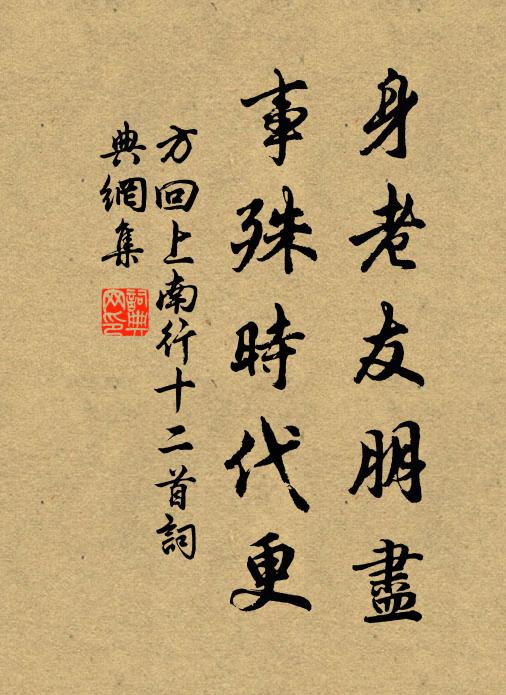 身老友朋盡
事殊時代更
方回上南行十二首詞
典網集
詞典
网印